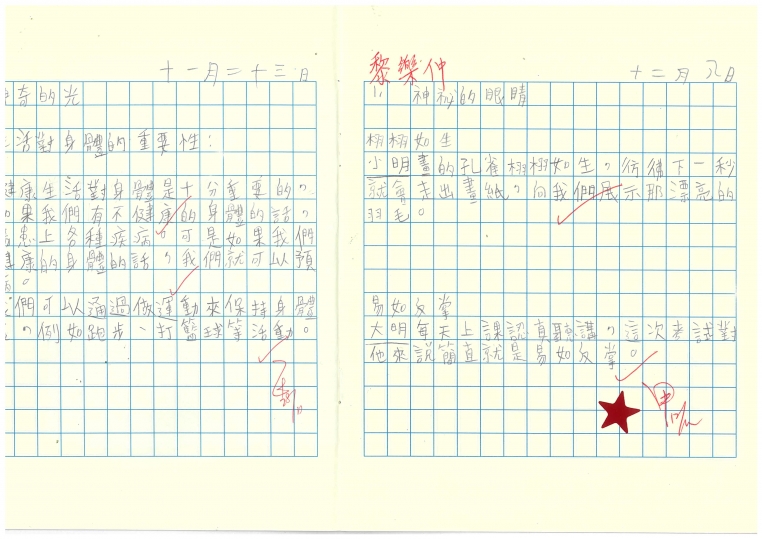 十一月二十三日
奇的光
活對身體的重要性：
健康生活對身體是十分重要的，
果我們有不健康的身體的話，
患上各種疾病，可是如果我們
健康的身體的話，我們就可以預
病。
們可以通過做運動來保持身體
，例如跑步、打籃球等活動。
黎樂仲
十二月八日
1. 神祕的眼睛
栩栩如生
小明畫的孔雀栩栩如生，彷彿下一秒
就會走出畫紙，向我們展示那漂亮的
羽毛。
易如反掌
大明每天上課認真聽講，這次考試對
他來說簡直就是易如反掌。
甲